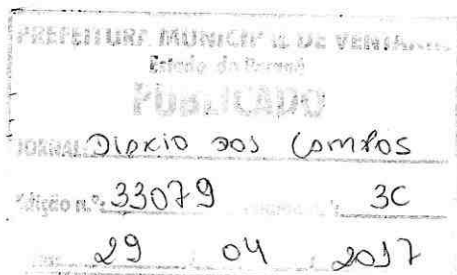 PREFEITURA MUNICIPAL DE VENTANIA
Estado do Paraná
PUBLICADO
JORNAL: DIÁRIO DOS CAMPOS
Edição n.º 33079 3C
29 04 2017